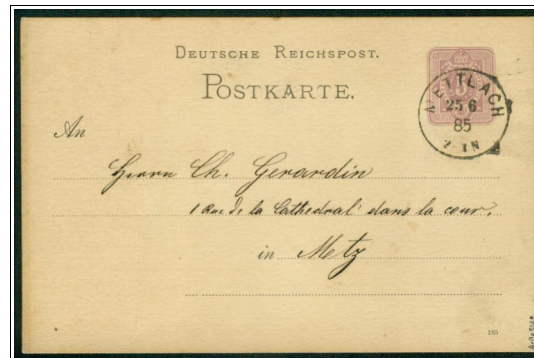 DEUTSCHE REICHSPOST.
POSTKARTE.
5
METTLACH
25 6
85
An
Herrn Ch. Gerardin
1 Rue de la Cathedral' dans la cour.
in Metz
185